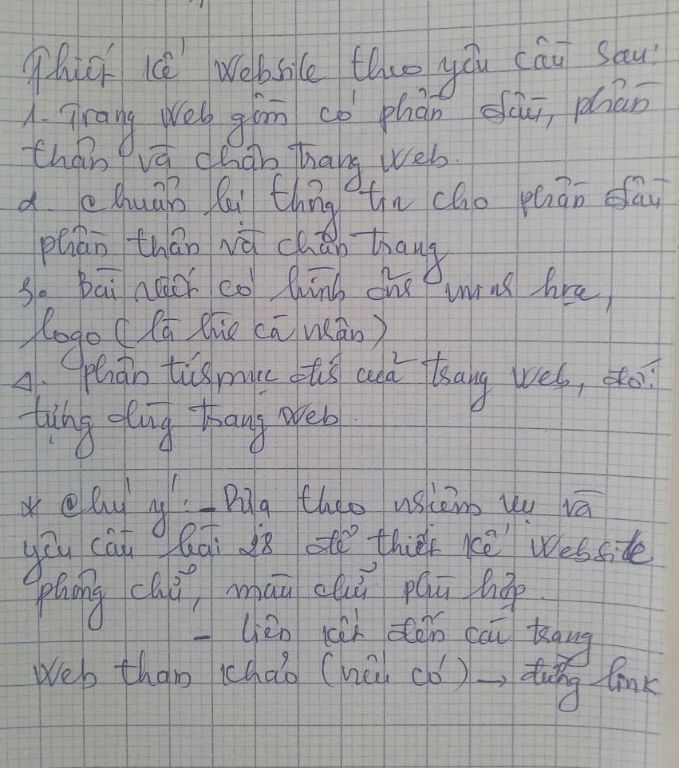 Thiết kế Website theo yêu cầu sau:
1. Trang Web gồm có phần đầu, phần
thân và chân trang Web.
2. Chuẩn bị thông tin cho phần đầu
phần thân và chân trang
3. Bài viết có hình ảnh minh họa,
logo (là cá nhân)
4. Phân tích mục đích của trang Web, đối
tượng dùng trang Web.
* Chú ý: - Dựa theo nhiệm vụ và
yêu cầu bài 18 để thiết kế Website
phông chữ, màu chữ phù hợp.
- liên kết đến các trang
Web tham khảo (nếu có) → đường link